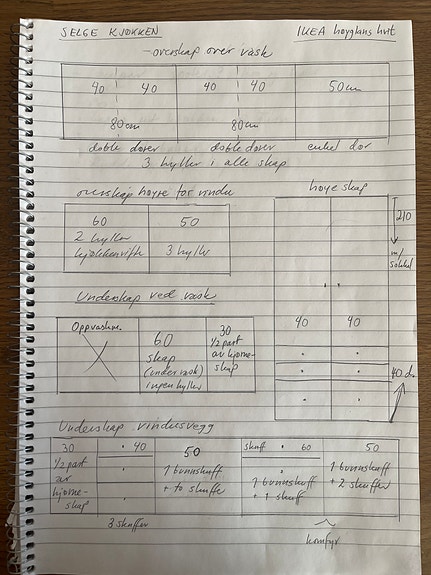 SELGE KJØKKEN
IKEA høyglans hvit
- overskap over vask
40 40 40 40 50cm
80cm 80cm
doble dører doble dører enkel dør
3 hyller i alle skap
overskap høyre for vindu
høye skap
60 50
2 hyller
kjøkkenvifte 3 hyller
210
m/
sokkel
Underskap ved vask
Oppvaskm.
60
skap
(under vask)
ingen hyller
30
1/2 part
av hjørne-
skap
40 40
40 dr
Underskap vindusvegg
30
1/2 part
av
hjørne-
skap
40
3 skuffer
50
1 bunnskuff
+ to skuffer
skuff 60
1 bunnskuff
+ 1 skuff
50
1 bunnskuff
+ 2 skuffer
komfyr